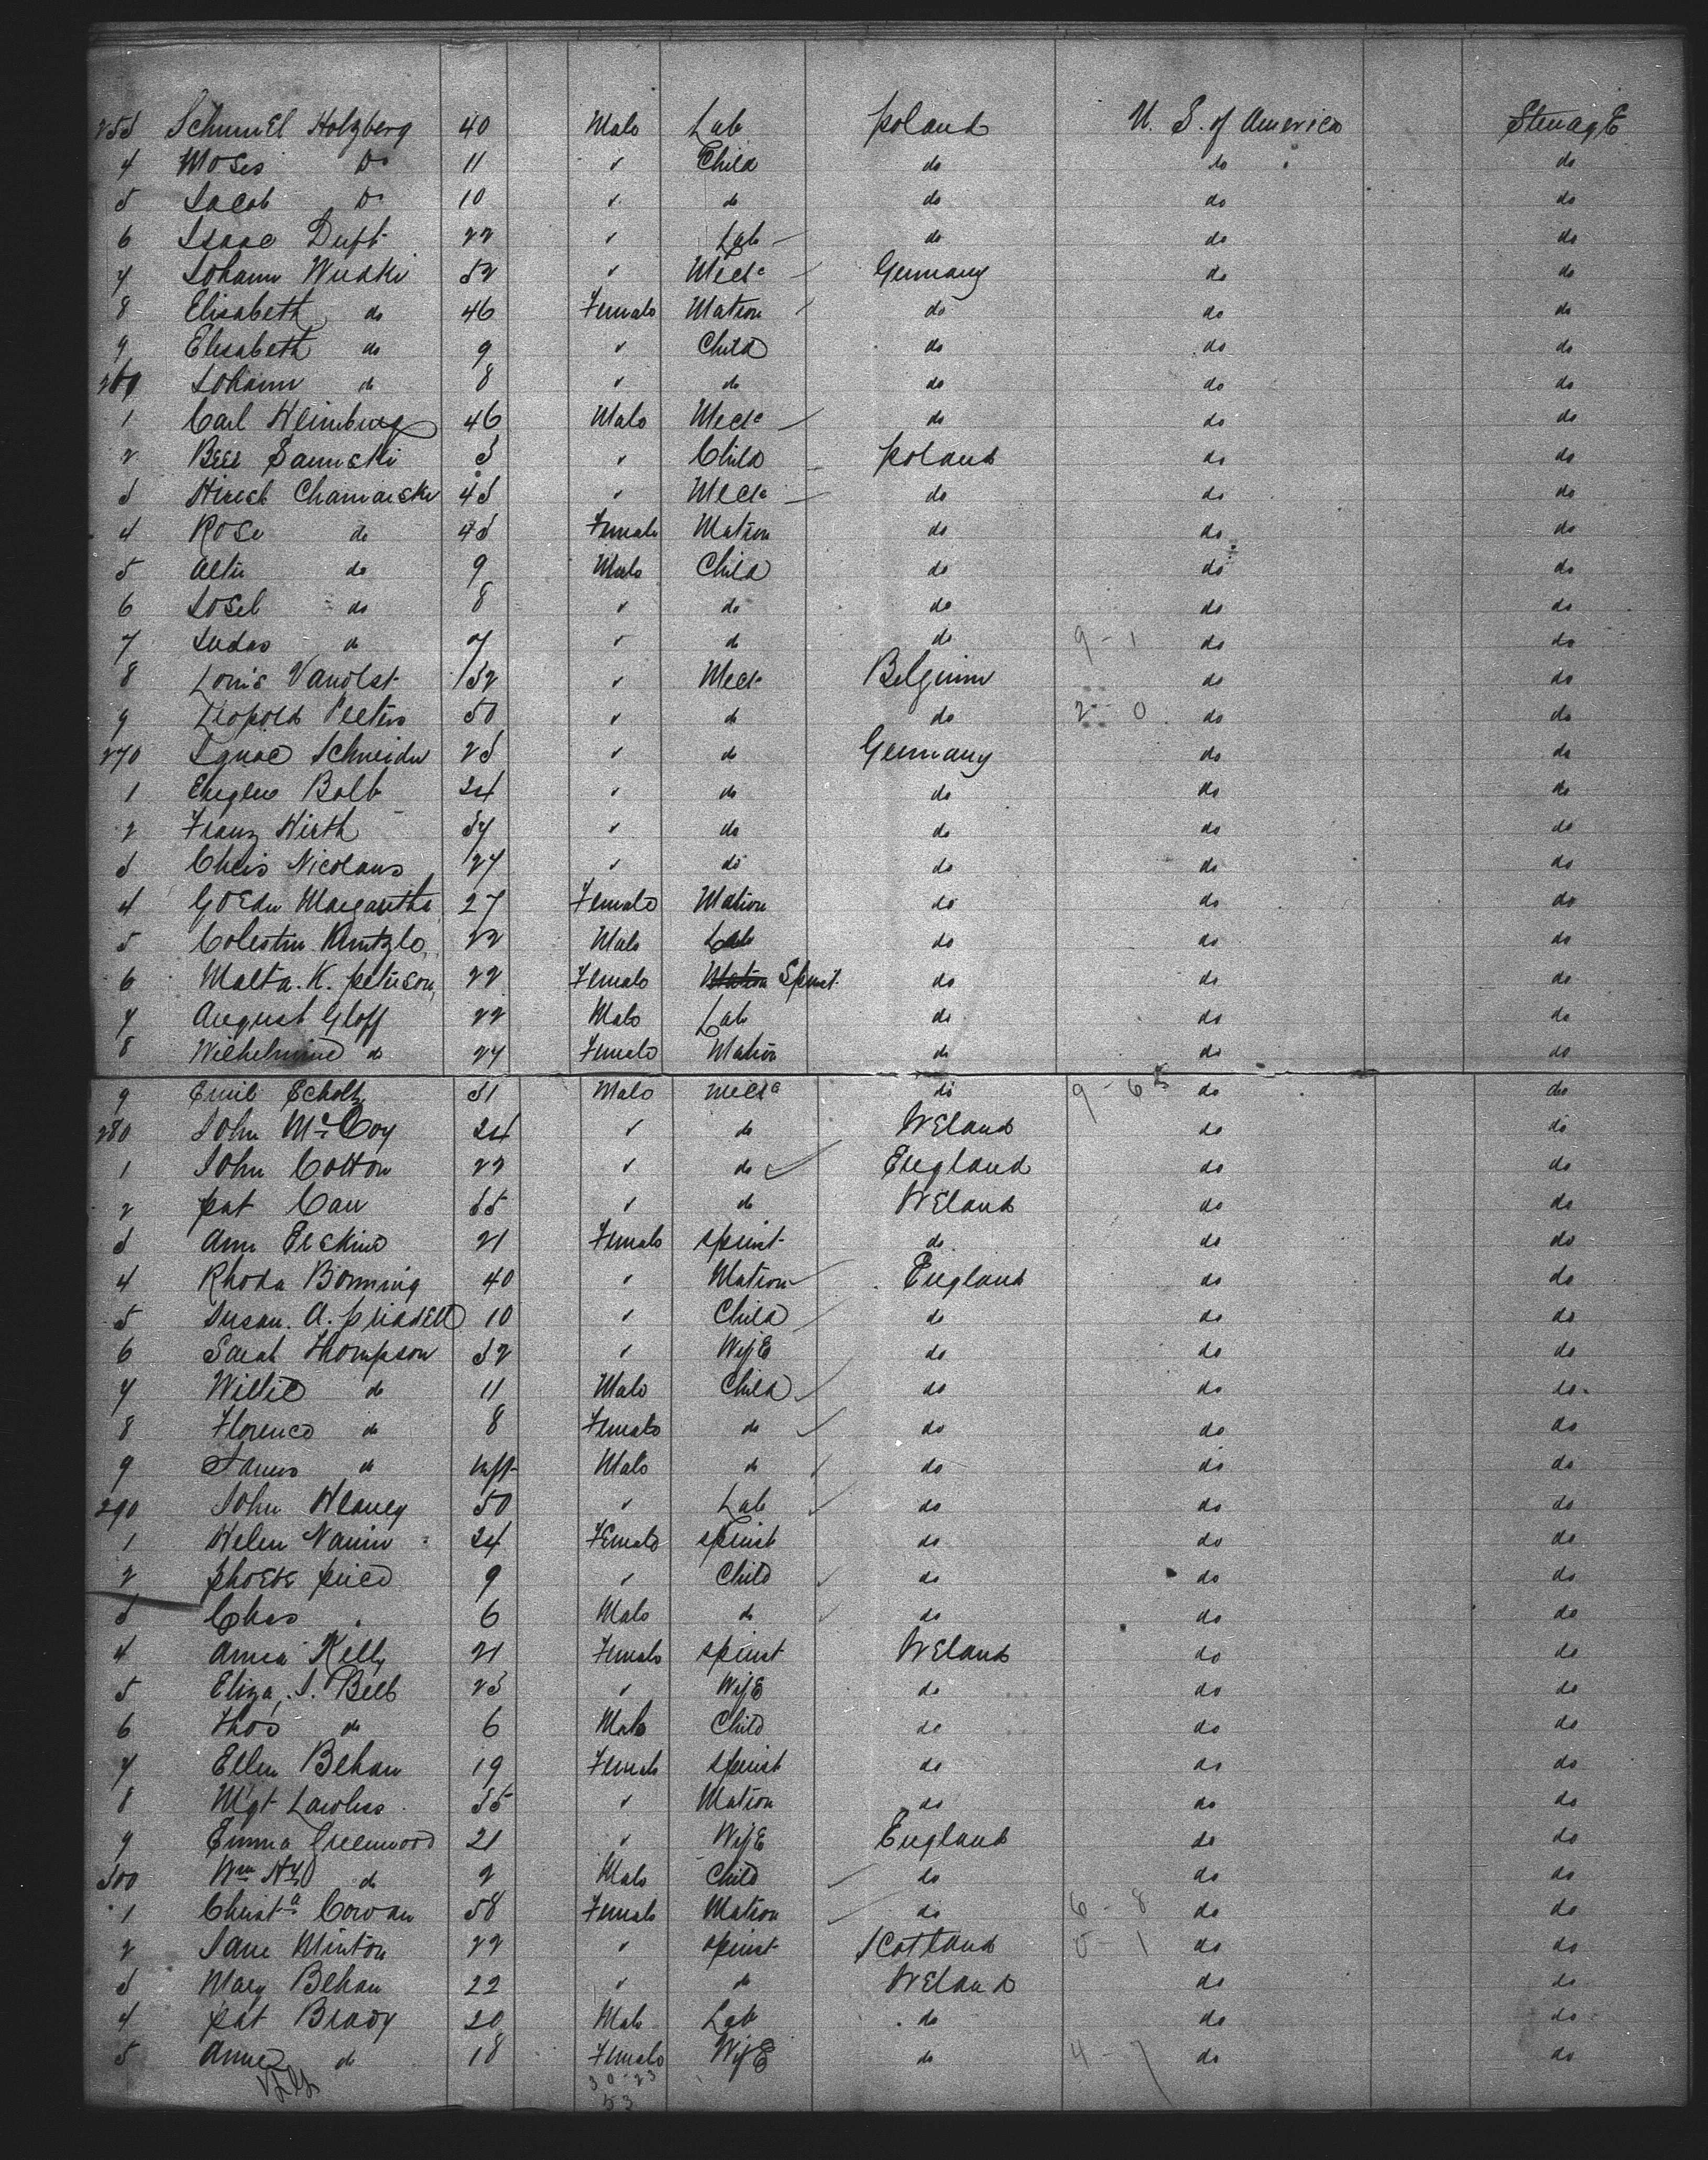 253 Schmuel Holzberg 40 Male Lab Poland U. S. of America Steerage
4 Moses Do 11 " Child do do do
5 Jacob Do 10 " do do do do
6 Isaac 22 " Lab do do do
7 Johann 52 " Mech Germany do do
8 Elisabeth do 46 Female Matron do do do
9 Elisabeth do 9 " Child do do do
260 Johann do 8 " do do do do
1 Carl Heimburg 46 Male Mech do do do
2 3 " Child Poland do do
3 Hirsch 43 " Mech do do do
4 Rose do 43 Female Matron do do do
5 do 9 Male Child do do do
6 Josel do 8 " do do do do
7 Judas do 7 " do do 9 - 1 do do
8 Louis 32 " Mech Belgium do do
9 Leopold Peeters 50 " do do 2 - 0 do do
270 Ignac Schneider 23 " do Germany do do
1 Eugene 24 " do do do do
2 Franz Hirth 37 " do do do do
3 Chris Nicolaus 27 " do do do do
4 Margaretha 27 Female Matron do do do
5 Celestin Kintzle 22 Male Lab do do do
6 Malta. K. Peterson 22 Female Matron Spinst do do do
7 August Gloff 22 Male Lab do do do
8 Wilhelmine do 27 Female Matron do do do
9 Emil Scholtz 31 Male Mech do 9 - 6 do do
280 John McCoy 24 " do Ireland do do
1 John Cotton 22 " do England do do
2 Pat Carr 35 " do Ireland do do
3 Ann Erskine 21 Female Spinst do do do
4 Rhoda Bonning 40 " Matron England do do
5 Susan. A. 10 " Child do do do
6 Sarah Thompson 32 " Wife do do do
7 Willie do 11 Male Child do do do
8 Florence do 8 Female do do do do
9 James do Inft Male do do do do
290 John Heaney 50 " Lab do do do
1 Helen 24 Female Spinst do do do
2 Phoebe Price 9 " Child do do do
3 Chas " 6 Male do do do do
4 Annie Kelly 21 Female Spinst Ireland do do
5 Eliza. J. Bell 23 " Wife do do do
6 Thos do 6 Male Child do do do
7 Ellen Behan 19 Female Spinst do do do
8 Mgt Lawless 35 " Matron do do do
9 Emma Greenwood 21 " Wife England do do
300 Wm Hy do 2 Male Child do do do
1 Christa Cowan 58 Female Matron do 6 - 8 do do
2 Jane Minton 22 " Spinst Scotland 0 - 1 do do
3 Mary Behan 22 " do Ireland do do
4 Pat Brady 20 Male Lab do do do
5 Annie do 18 Female Wife do 4 - 7 do do
30 - 23
53